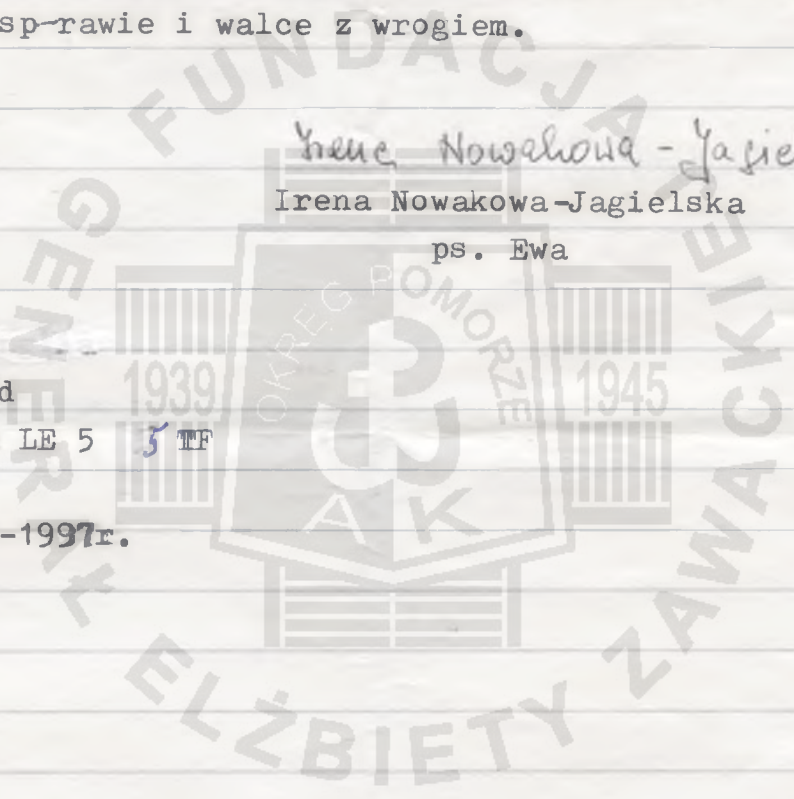 sp-rawie i walce z wrogiem.
Irena Nowakowa - Jagie
Irena Nowakowa-Jagielska
ps. Ewa
d
LE 5 5 TF
-1997r.
FUNDACJA
GENERAŁ ELŻBIETY ZAWACKIEJ
OKRĘG POMORZE
1939
1945
AK